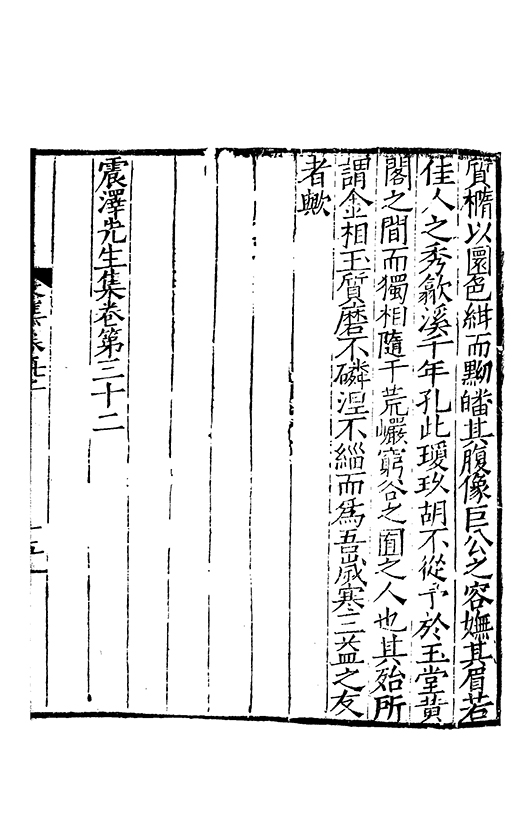 質橢以圜色紺而黝皤其腹像巨公之容嫵其眉若
佳人之秀歙溪千年孔此瓊玖胡不從予於玉堂黄
閣之間而獨相隨于荒巖窮谷之囿之人也其殆所
謂金相玉質磨不磷涅不緇而爲吾歲寒三益之友
者歟
震澤先生集卷第三十二